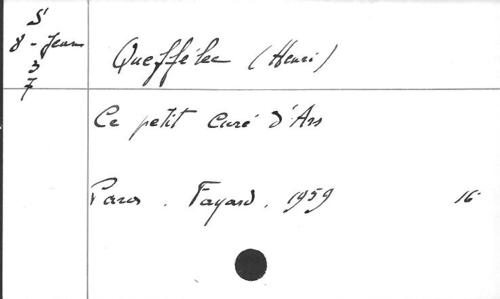 S
8 - Jeans
3
7
Queffélec (Henri)
Ce petit Curé d'Ars
Paris. Fayard. 1959 16